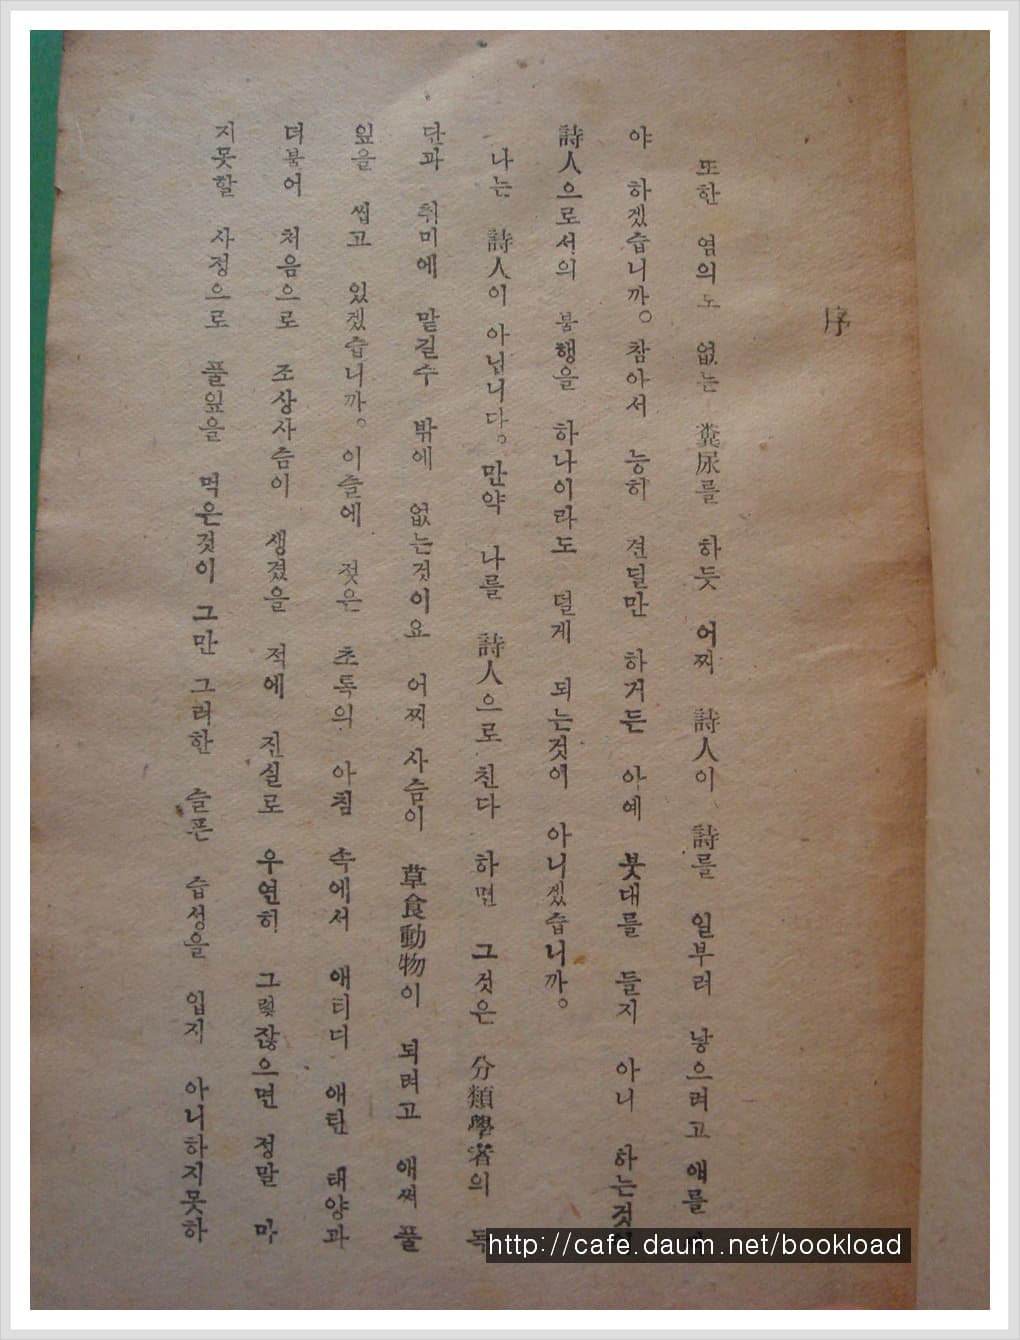 序
또한 염의도 없는 糞尿를 하듯 어찌 詩人이 詩를 일부러 낳으려고 애를
야 하겠습니까。참아서 능히 견딜만 하거든 아예 붓대를 들지 아니 하는것이
詩人으로서의 불행을 하나이라도 덜게 되는것이 아니겠습니까。
나는 詩人이 아닙니다。만약 나를 詩人으로 친다 하면 그것은 分類學者의 독
단과 취미에 맡길수 밖에 없는것이요 어찌 사슴이 草食動物이 되려고 애써 풀
잎을 씹고 있겠습니까。이슬에 젖은 초록의 아침 속에서 애티디 애틴 태양과
더불어 처음으로 조상사슴이 생겼을 적에 진실로 우연히 그렇잖으면 정말 마
지못할 사정으로 풀잎을 먹은것이 그만 그러한 슬픈 습성을 입지 아니하지못하
http://cafe.daum.net/bookload